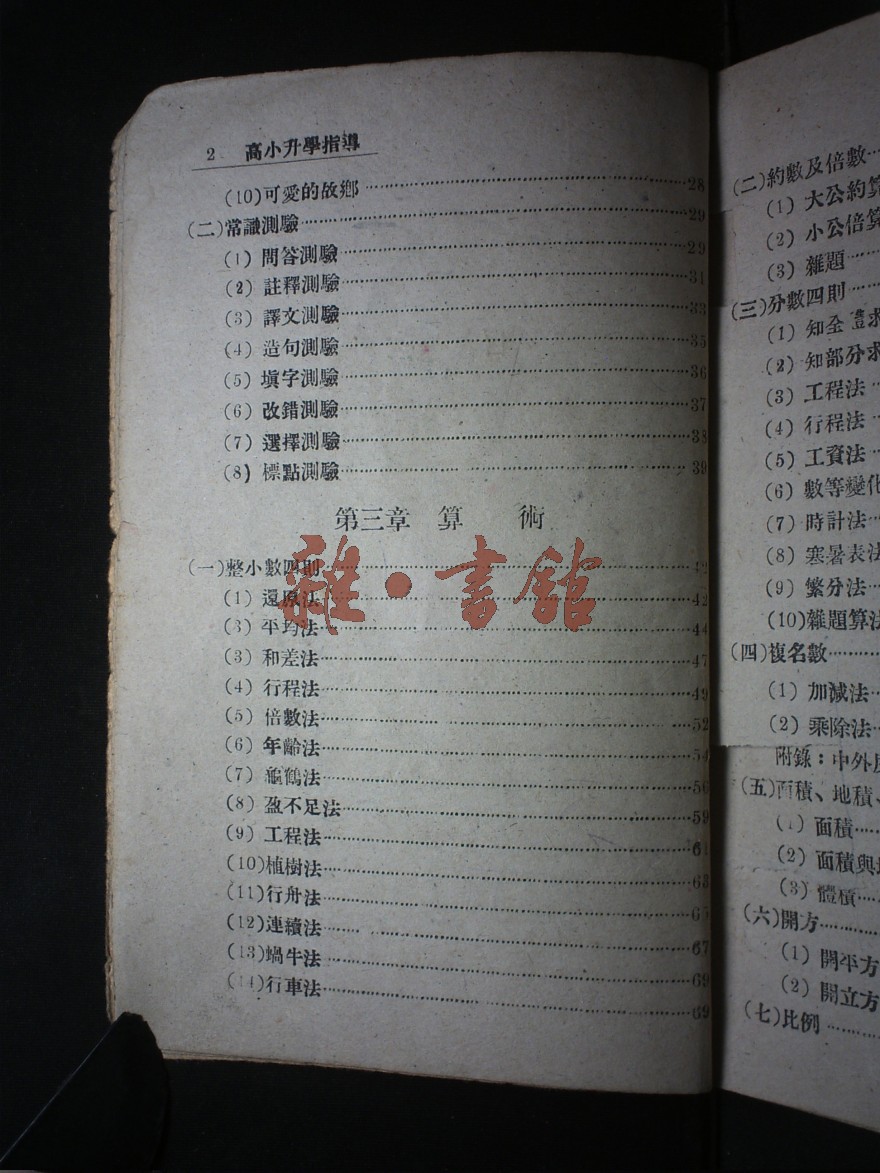 2 高小升學指導
(10)可愛的故鄉……28
(二)常識測驗……29
(1) 問答測驗……29
(2) 註釋測驗……31
(3) 譯文測驗……33
(4) 造句測驗……35
(5) 填字測驗……36
(6) 改錯測驗……37
(7) 選擇測驗……38
(8) 標點測驗……39
第三章 算 術
(一)整小數四則……42
(1) 還原法……42
(3) 平均法……44
(3) 和差法……47
(4) 行程法……49
(5) 倍數法……52
(6) 年齡法……54
(7) 龜鶴法……56
(8) 盈不足法……59
(9) 工程法……61
(10)植樹法……63
(11)行舟法……65
(12)連續法……67
(13)蝸牛法……69
(14)行車法……69
雜·書館
(二)約數及倍數…
(1) 大公約算
(2) 小公倍算
(3) 雜題……
(三)分數四則……
(1) 知全 求
(2) 知部分求
(3) 工程法…
(4) 行程法…
(5) 工資法…
(6) 數等變化
(7) 時計法…
(8) 寒暑表法
(9) 繁分法…
(10)雜題算法
(四)複名數……
(1) 加減法…
(2) 乘除法…
附錄：中外
(五)面積、地積、
(1) 面積……
(2) 面積與
(3) 體積……
(六)開方……
(1) 開平方
(2) 開立方
(七)比例……